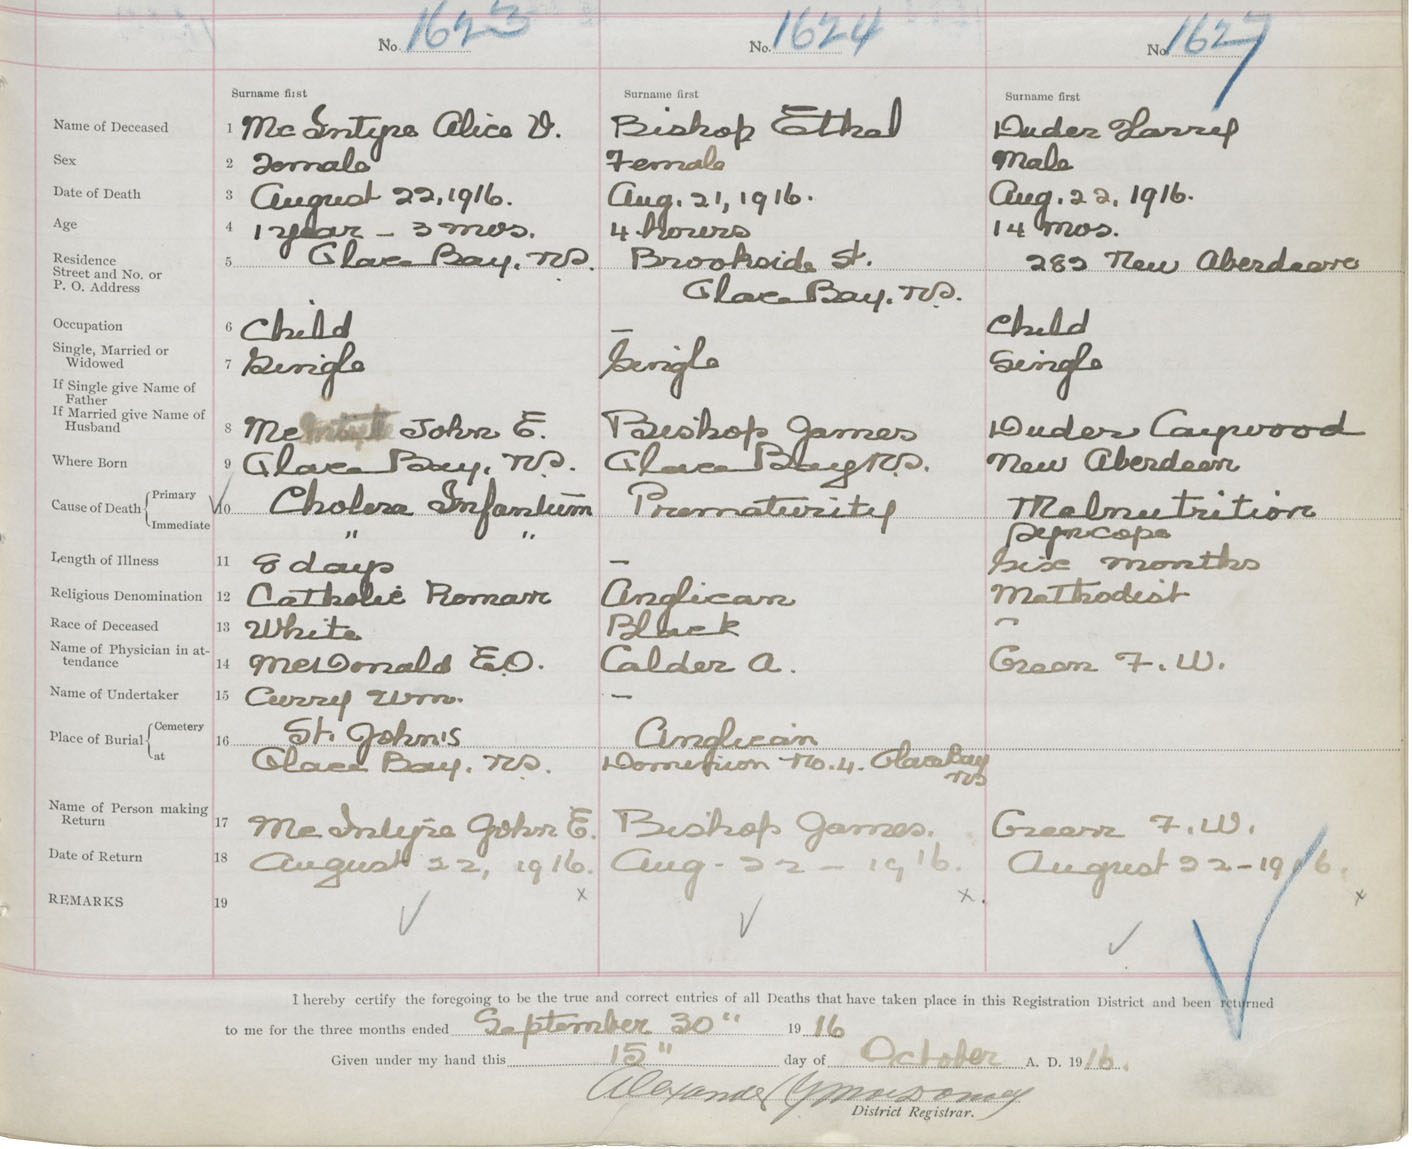 No. 1623 No. 1624 No. 1627
Surname first Surname first Surname first
Name of Deceased 1 McIntyre Alice D. Bishop Ethel Duder Harry
Sex 2 Female Female Male
Date of Death 3 August 22, 1916. Aug. 21, 1916. Aug. 22, 1916.
Age 4 1 year - 3 mos. 4 hours 14 mos.
Residence 5 Glace Bay, N.S. Brookside St. 282 New Aberdeen
Street and No. or
P. O. Address Glace Bay, N.S.
Occupation 6 Child – Child
Single, Married or
Widowed 7 Single Single Single
If Single give Name of
Father
If Married give Name of
Husband 8 McIntyre John E. Bishop James Duder Caywood
Where Born 9 Glace Bay, N.S. Glace Bay N.S. New Aberdeen
Cause of Death { Primary 10 Cholera Infantum Prematurity Malnutrition
Immediate " " Syncope
Length of Illness 11 8 days – Six months
Religious Denomination 12 Catholic Roman Anglican Methodist
Race of Deceased 13 White Black "
Name of Physician in at-
tendance 14 McDonald E.O. Calder A. Green F. W.
Name of Undertaker 15 Curry Wm. –
Place of Burial { Cemetery 16 St. John's Anglican
at Glace Bay, N.S. Dominion No. 4. Glace Bay NS
Name of Person making
Return 17 McIntyre John E. Bishop James. Green F. W.
Date of Return 18 August 22, 1916. Aug - 22 - 1916. August 22 - 1916.
REMARKS 19 x x. x
I hereby certify the foregoing to be the true and correct entries of all Deaths that have taken place in this Registration District and been returned
to me for the three months ended September 30" 19 16
Given under my hand this 15" day of October A. D. 1916.
Alexander
District Registrar.